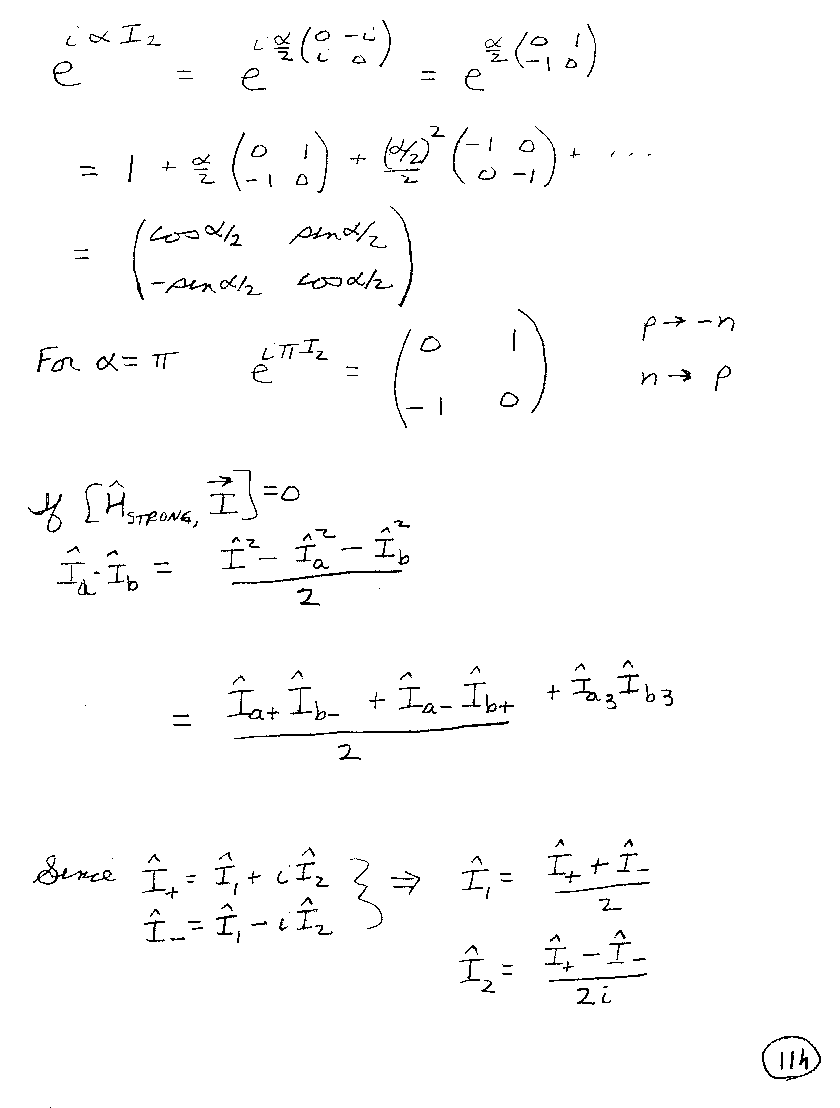 e^{iαI₂} = e^{i α/2 (0 -i; i 0)} = e^{α/2 (0 1; -1 0)}
= 1 + α/2 (0 1; -1 0) + (α/2)²/2 (-1 0; 0 -1) + ...
= (cos α/2 sin α/2; -sin α/2 cos α/2)
For α = π e^{iπI₂} = (0 1; -1 0) p → -n
n → p
If [Ĥ_STRONG, I⃗] = 0
Î_a · Î_b = (Î² - Î_a² - Î_b²)/2
= (Î_{a+} Î_{b-} + Î_{a-} Î_{b+})/2 + Î_{a3} Î_{b3}
Since Î₊ = Î₁ + i Î₂ } ⇒ Î₁ = (Î₊ + Î₋)/2
Î₋ = Î₁ - i Î₂
Î₂ = (Î₊ - Î₋)/2i
114